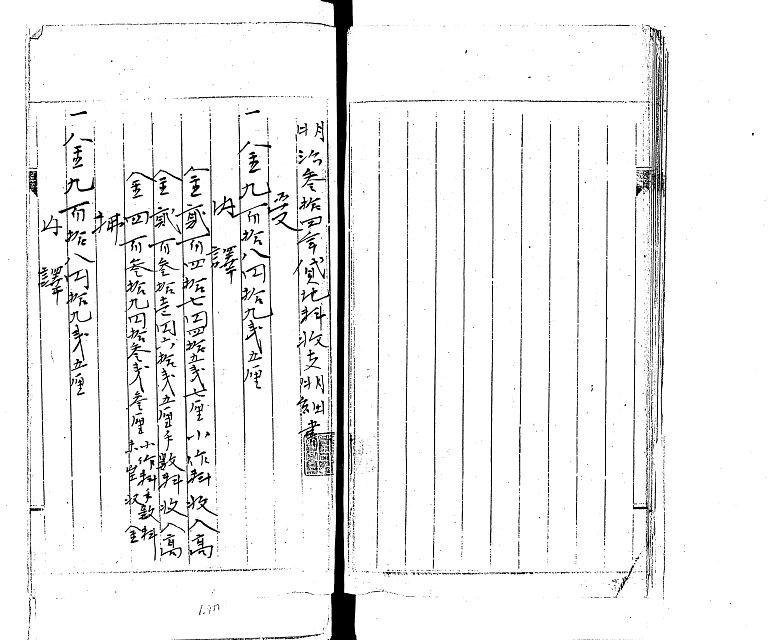 明治参拾四年貸地料収支明細書
受
一金九百拾八円拾九銭五厘
内譯
金貳百四拾七円四拾五銭七厘小作料収入高
金貳百参拾壱円六拾銭五厘手数料収入高
金四百参拾九円拾参銭参厘小作料手数料未実収金
拂
一金九百拾八円拾九銭五厘
内譯